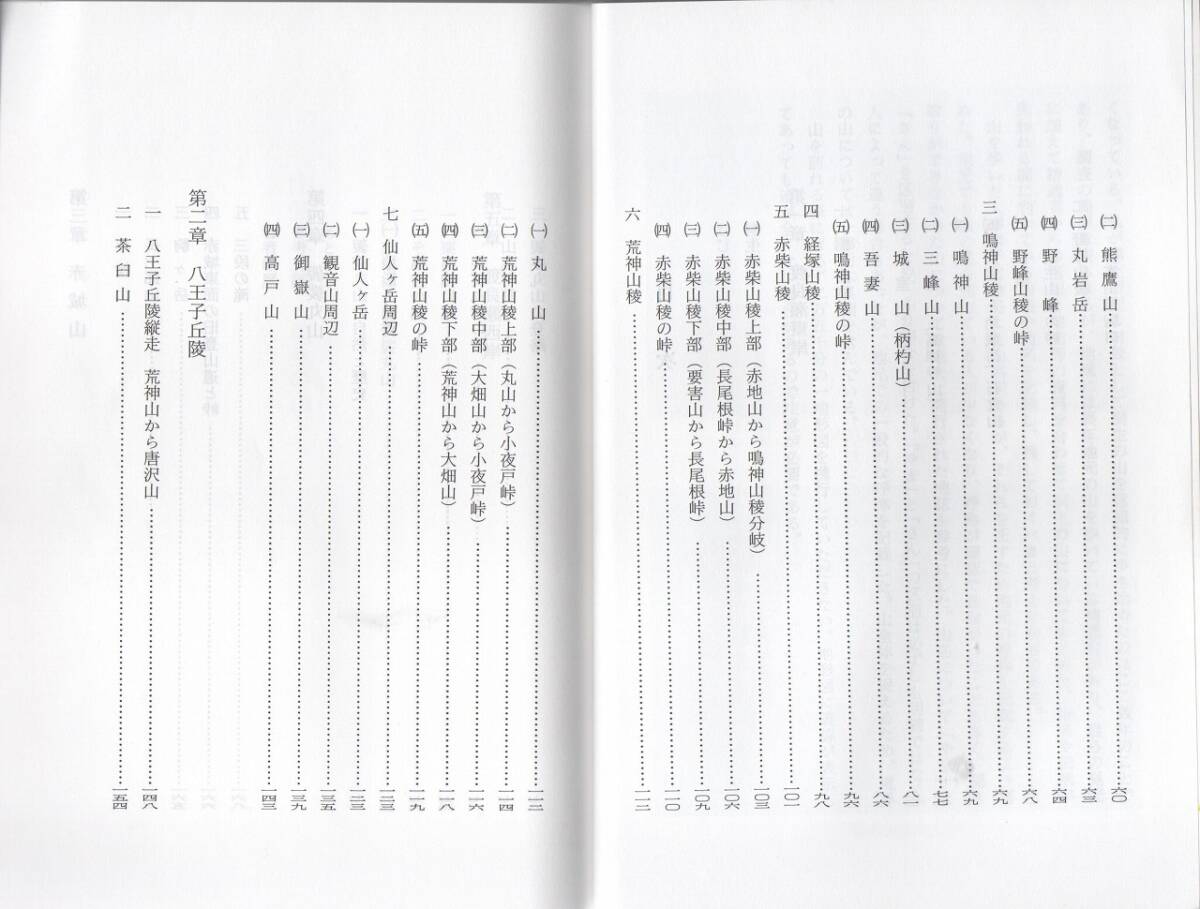 ㈡ 熊鷹山……六〇
㈢ 丸岩岳……六三
㈣ 野峰……六四
㈤ 野峰山稜の峠……六八
三 鳴神山稜……六九
㈠ 鳴神山……六九
㈡ 三峰山……七七
㈢ 城山（柄杓山）……八一
㈣ 吾妻山……八六
㈤ 鳴神山稜の峠……九六
四 経塚山稜……九八
五 赤柴山稜……一〇一
㈠ 赤柴山稜上部（赤地山から鳴神山稜分岐）……一〇三
㈡ 赤柴山稜中部（長尾根峠から赤地山）……一〇六
㈢ 赤柴山稜下部（要害山から長尾根峠）……一〇九
㈣ 赤柴山稜の峠……一一〇
六 荒神山稜……一一二
㈠ 丸山……一一二
㈡ 荒神山稜上部（丸山から小夜戸峠）……一一四
㈢ 荒神山稜中部（大畑山から小夜戸峠）……一一六
㈣ 荒神山稜下部（荒神山から大畑山）……一一八
㈤ 荒神山稜の峠……一一九
七 仙人ヶ岳周辺……一二三
㈠ 仙人ヶ岳……一二三
㈡ 観音山周辺……一三五
㈢ 御嶽山……一三九
㈣ 高戸山……一四三
第二章 八王子丘陵
一 八王子丘陵縦走 荒神山から唐沢山……一四八
二 茶臼山……一五四